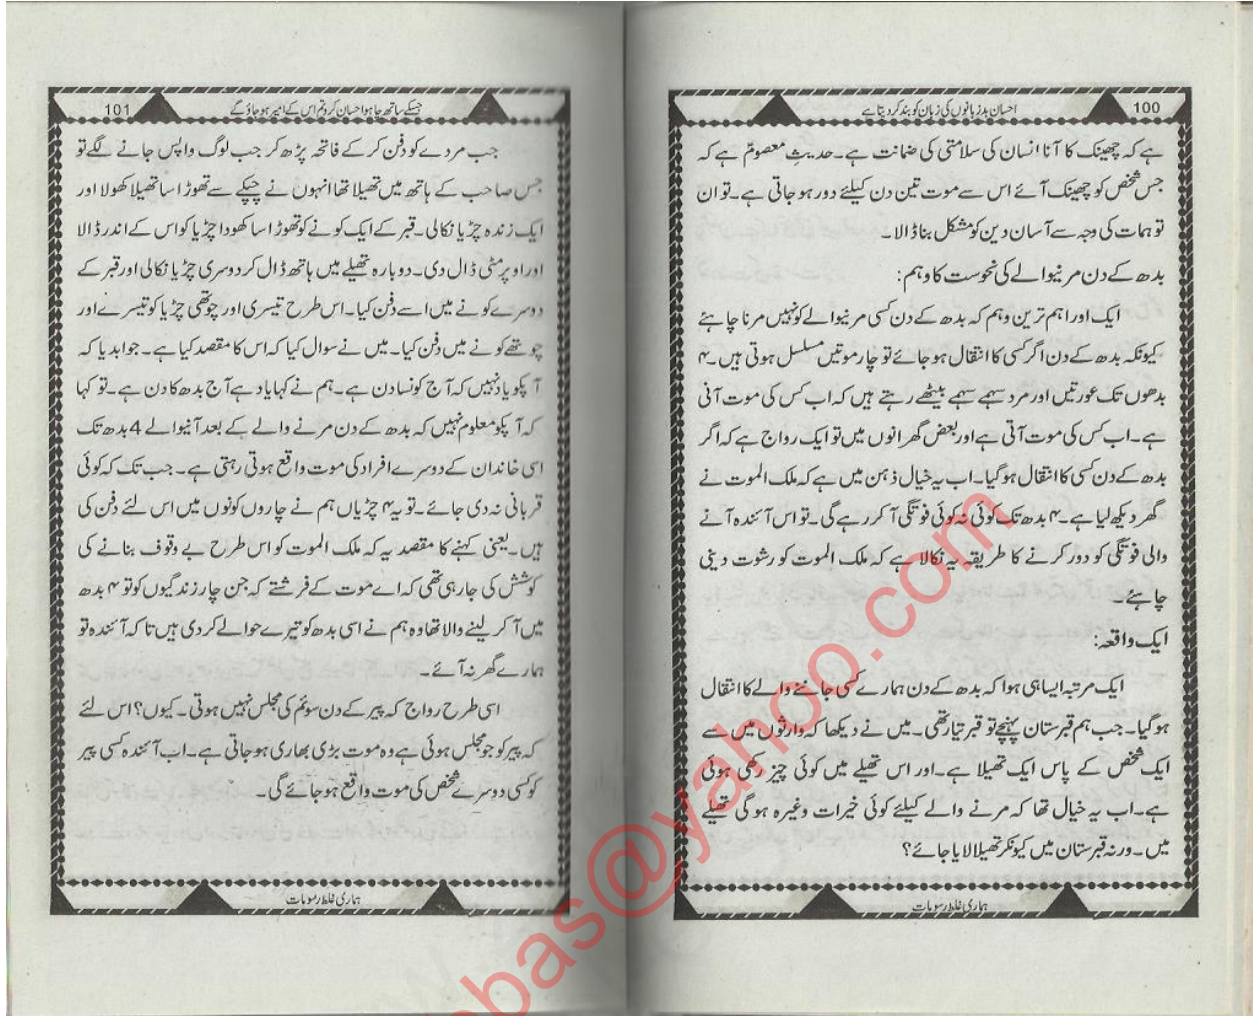 احسان بدزبانوں کی زبان کو بند کر دیتا ہے 100
ہے کہ چھینک کا آنا انسان کی سلامتی کی ضمانت ہے۔ حدیثِ معصومؑ ہے کہ
جس شخص کو چھینک آئے اس سے موت تین دن کیلئے دور ہو جاتی ہے۔ تو ان
توہمات کی وجہ سے آسان دین کو مشکل بنا ڈالا۔
بدھ کے دن مرنیوالے کی نحوست کا وہم:
ایک اور اہم ترین وہم کہ بدھ کے دن کسی مرنیوالے کو نہیں مرنا چاہئے
کیونکہ بدھ کے دن اگر کسی کا انتقال ہو جائے تو چار موتیں مسلسل ہوتی ہیں۔ ۴
بدھوں تک عورتیں اور مرد سہمے سہمے بیٹھے رہتے ہیں کہ اب کس کی موت آنی
ہے۔ اب کس کی موت آتی ہے اور بعض گھرانوں میں تو ایک رواج ہے کہ اگر
بدھ کے دن کسی کا انتقال ہو گیا۔ اب یہ خیال ذہن میں ہے کہ ملک الموت نے
گھر دیکھ لیا ہے۔ ۴ بدھ تک کوئی نہ کوئی فوتگی آ کر رہے گی۔ تو اس آئندہ آنے
والی فوتگی کو دور کرنے کا طریقہ یہ نکالا ہے کہ ملک الموت کو رشوت دینی
چاہئے۔
ایک واقعہ:
ایک مرتبہ ایسا ہی ہوا کہ بدھ کے دن ہمارے کسی جاننے والے کا انتقال
ہو گیا۔ جب ہم قبرستان پہنچے تو قبر تیار تھی۔ میں نے دیکھا کہ وارثوں میں سے
ایک شخص کے پاس ایک تھیلا ہے۔ اور اس تھیلے میں کوئی چیز رکھی ہوئی
ہے۔ اب یہ خیال تھا کہ مرنے والے کیلئے کوئی خیرات وغیرہ ہو گی تھیلے
میں۔ ورنہ قبرستان میں کیونکر تھیلا لایا جائے؟
ہماری غلط رسومات
جسکے ساتھ چاہو احسان کرو تم اس کے امیر ہو جاؤ گے 101
جب مردے کو دفن کر کے فاتحہ پڑھ کر جب لوگ واپس جانے لگے تو
جس صاحب کے ہاتھ میں تھیلا تھا انہوں نے چپکے سے تھوڑا سا تھیلا کھولا اور
ایک زندہ چڑیا نکالی۔ قبر کے ایک کونے کو تھوڑا سا کھودا چڑیا کو اس کے اندر ڈالا
اور اوپر مٹی ڈال دی۔ دوبارہ تھیلے میں ہاتھ ڈال کر دوسری چڑیا نکالی اور قبر کے
دوسرے کونے میں اسے دفن کیا۔ اس طرح تیسری اور چوتھی چڑیا کو تیسرے اور
چوتھے کونے میں دفن کیا۔ میں نے سوال کیا کہ اس کا مقصد کیا ہے۔ جواب دیا کہ
آپکو یاد نہیں کہ آج کونسا دن ہے۔ ہم نے کہا یاد ہے آج بدھ کا دن ہے۔ تو کہا
کہ آپکو معلوم نہیں کہ بدھ کے دن مرنے والے کے بعد آنیوالے 4 بدھ تک
اسی خاندان کے دوسرے افراد کی موت واقع ہوتی رہتی ہے۔ جب تک کہ کوئی
قربانی نہ دی جائے۔ تو یہ ۴ چڑیاں ہم نے چاروں کونوں میں اس لئے دفن کی
ہیں۔ یعنی کہنے کا مقصد یہ کہ ملک الموت کو اس طرح بے وقوف بنانے کی
کوشش کی جا رہی تھی کہ اے موت کے فرشتے کہ جن چار زندگیوں کو تو ۴ بدھ
میں آ کر لینے والا تھا وہ ہم نے اسی بدھ کو تیرے حوالے کر دی ہیں تا کہ آئندہ تو
ہمارے گھر نہ آئے۔
اسی طرح رواج کہ پیر کے دن سوئم کی مجلس نہیں ہوتی۔ کیوں؟ اس لئے
کہ پیر کو جو مجلس ہوئی ہے وہ موت بڑی بھاری ہو جاتی ہے۔ اب آئندہ کسی پیر
کو کسی دوسرے شخص کی موت واقع ہو جائے گی۔
ہماری غلط رسومات
bas@yahoo.com